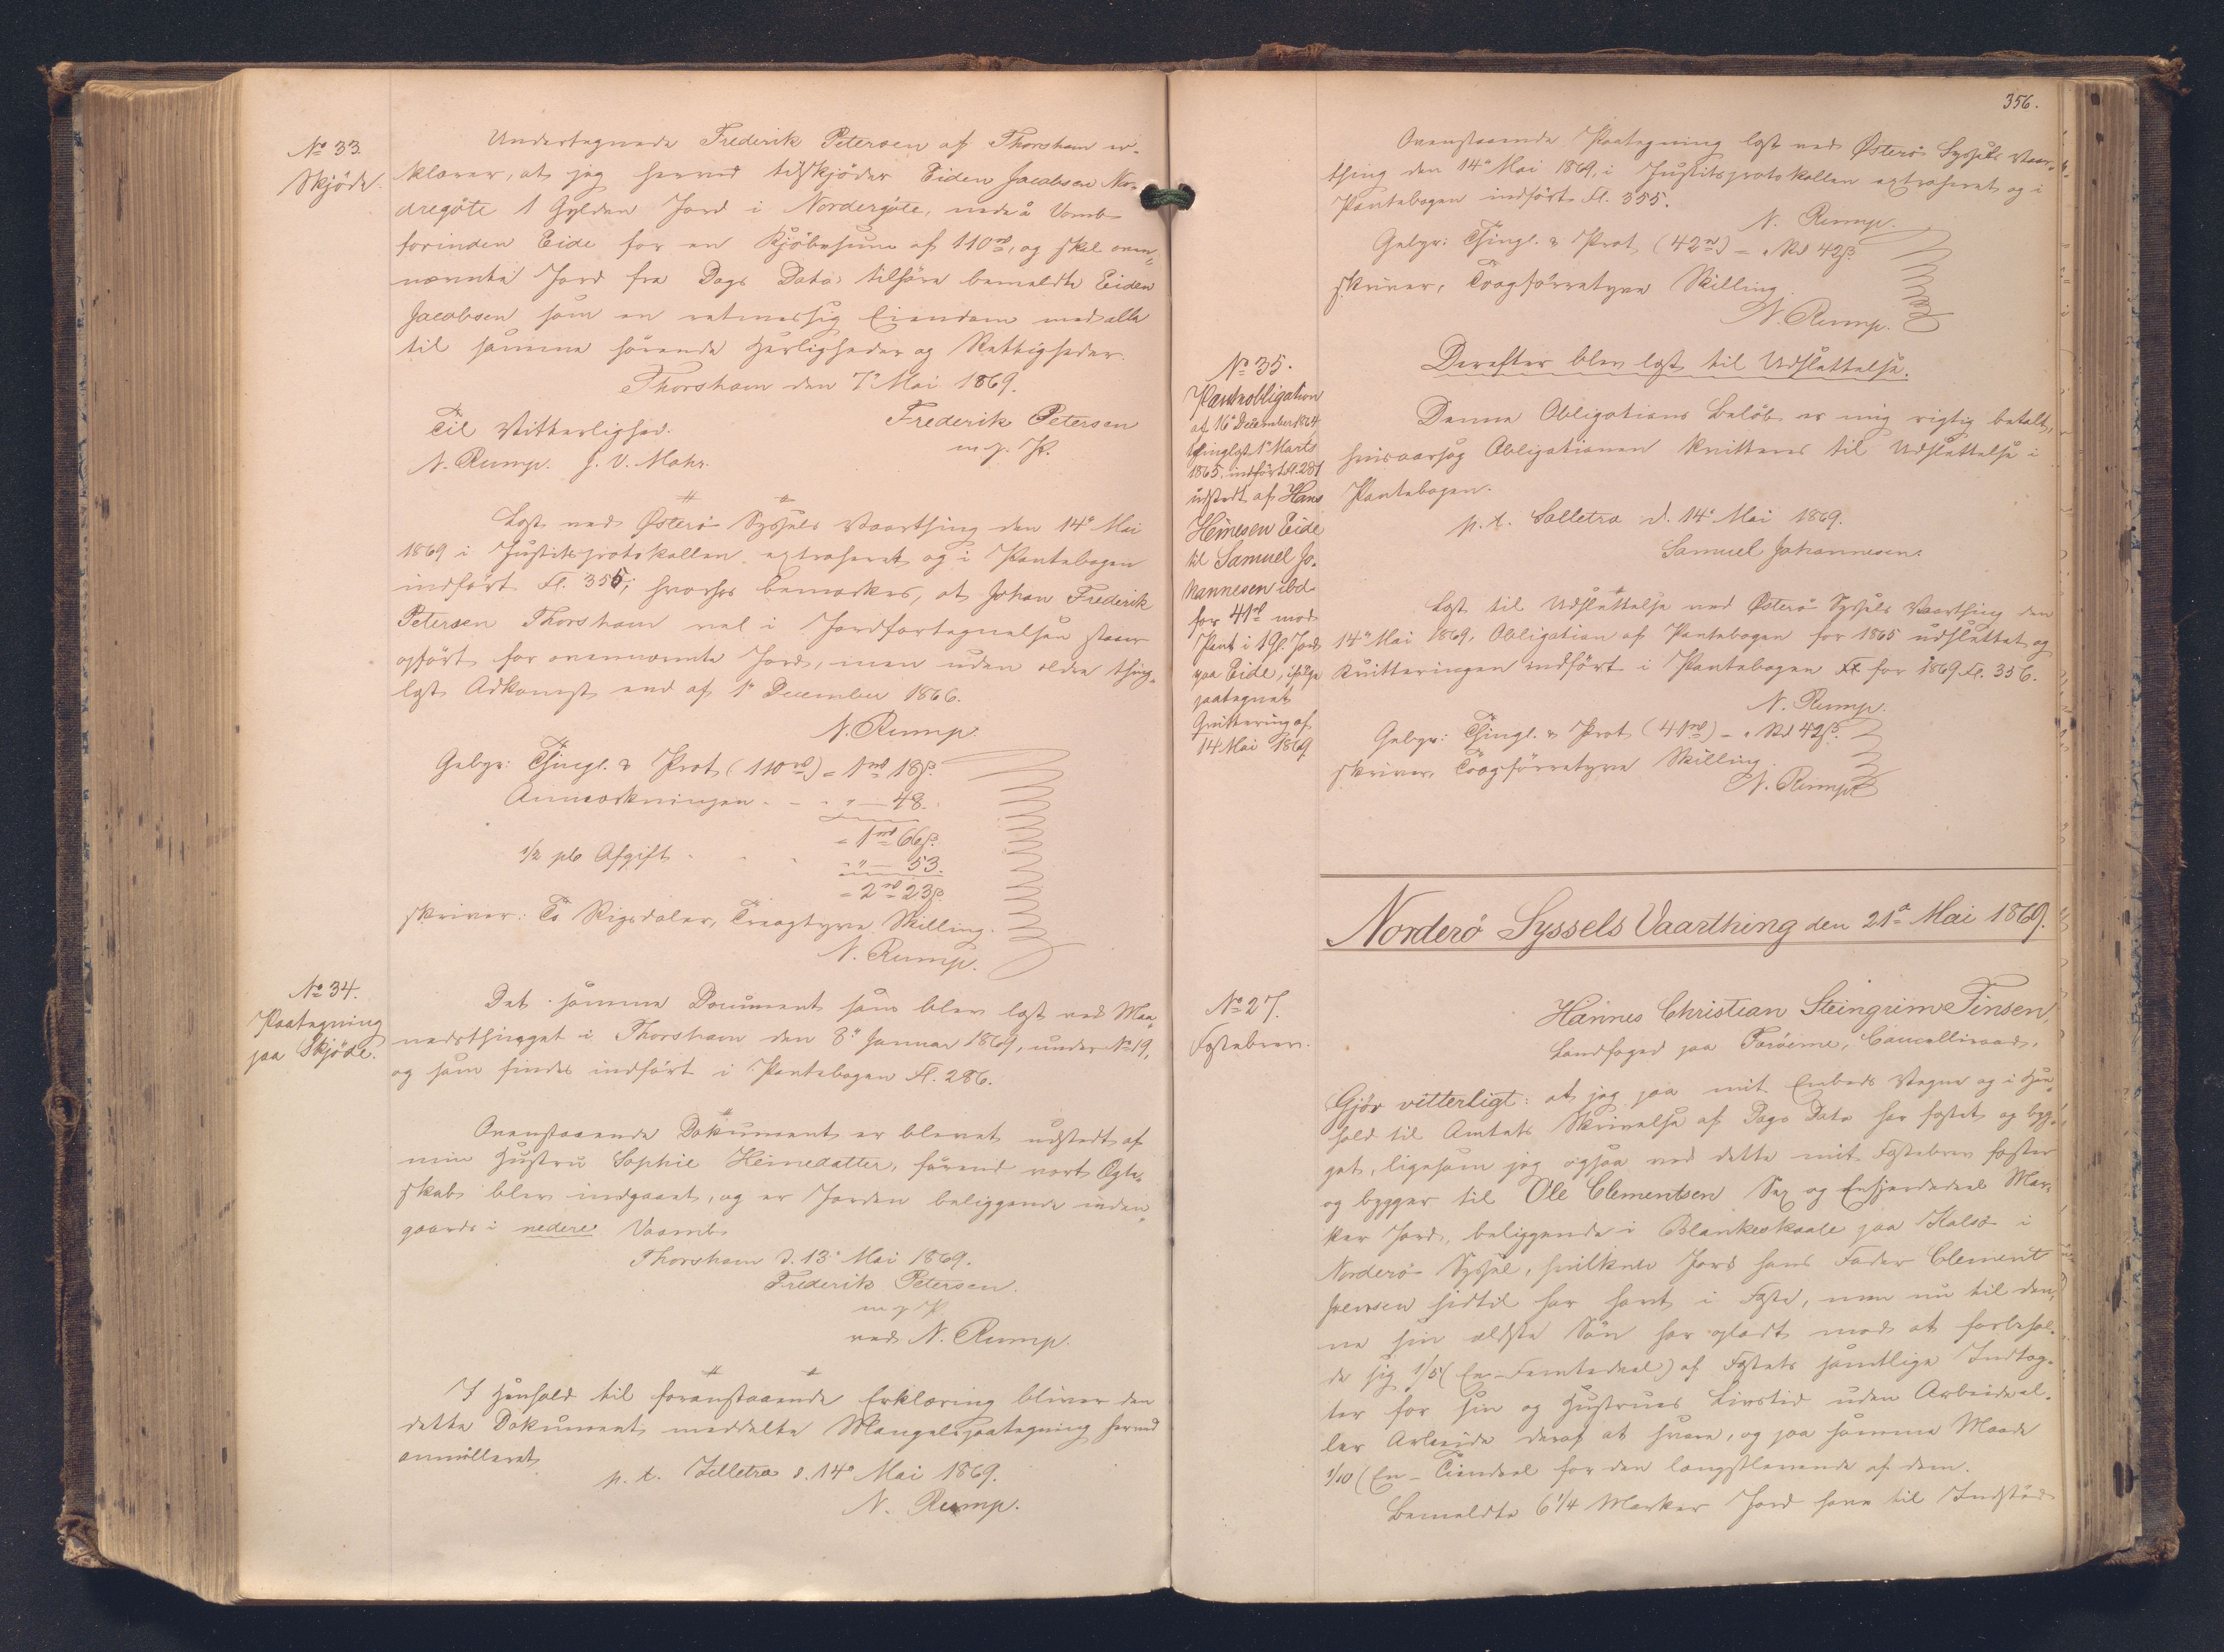 No 33.
Skjöde.
Undertegnede Frederik Petersen af Thorshavn er-
klærer, at jeg herved tilskjöder Eiden Jacobsen Nor-
dregöte 1 Gylden Jord i Nordergöte, nedeå Vamb
forinden Eide for en Kjöbesum af 110rd, og skal oven-
nævnte Jord fra Dags Dato tilhöre bemeldte Eiden
Jacobsen som en retmæssig Eiendom med alle
til samme hörende Herligheder og Rettigheder.
Thorshavn den 7de Mai 1869.
Til Vitterlighed.
Frederik Petersen
m. f. P.
N. Rump. J. V. Mohr.
Læst ved Österö Syssels Vaarthing den 14de Mai
1869 i Justitsprotokollen extraheret og i Pantebogen
indfört Fl. 355; hvorhos bemærkes, at Johan Frederik
Petersen Thorshavn vel i Jordfortegnelsen staaer
opfört for ovennævnte Jord, men uden ældre thing-
læst Adkomst end af 1ste December 1866.
N. Rump.
Gebyr: Thingl. & Prot (110rd) = 1rd 18s.
Anmærkningen - - " — 48.
= 1rd 66s.
1/2 pCt Afgift - - " — 53.
= 2rd 23s.
skriver: To Rigsdaler, Treogtyve Skilling.
N. Rump.
No 34.
Paategning
paa Skjöde.
Det samme Document som blev læst ved Maa-
nedsthinget i Thorshavn den 8de Januar 1869, under No 19,
og som findes indfört i Pantebogen Fl. 286.
Ovenstaaende Dokument er blevet udstedt af
min Hustru Sophie Heinedatter, förend vort Ægte-
skab blev indgaaet, og er Jorden beliggende inden-
gaards i nedere Vaamb.
Thorshavn d. 13de Mai 1869.
Frederik Petersen.
m. f. P.
ved N. Rump.
I Henhold til foranstaaende Erklæring bliver den
dette Dokument meddelte Mangelspaategning herved
annulleret
p. t. Selletræ d. 14de Mai 1869.
N. Rump.
356.
Ovenstaaende Paategning læst ved Österö Syssels Vaar-
thing den 14de Mai 1869, i Justitsprotokollen extraheret og i
Pantebogen indfört Fl. 355.
N. Rump.
Gebyr: Thingl. & Prot (42rd) = " Rd 42s.
skriver, Toogförretyve Skilling.
N. Rump.
Derefter blev læst til Udslettelse.
No 35.
Pantobligation
af 16de December 1864
thinglæst 1ste Marts
1865, indfört Fl. 281
udstedt af Hans
Heinesen Eide
til Samuel Jo-
hannesen ibd.
for 41rd mod
Pant i 1 Gl. Jord
paa Eide, ifölge
paategnet
Qvittering af
14 Mai 1869.
Denne Obligations Belöb er mig rigtig betalt,
hvisaarsag Obligationen kvitteres til Udslettelse i
Pantebogen.
p. t. Selletræ d. 14de Mai 1869.
Samuel Johannesen.
Læst til Udslettelse ved Österö Syssels Vaarthing den
14de Mai 1869. Obligation af Pantebogen for 1865 udslettet og
Kvitteringen indfört i Pantebogen for 1869 Fl. 356.
N. Rump.
Gebyr: Thingl. & Prot (41rd) = " Rd 42s.
skriver, Toogförretyve Skilling.
N. Rump
Norderö Syssels Vaarthing den 21de Mai 1869.
No 27.
Fæstebrev.
Hannes Christian Steingrim Finsen,
Landfoged paa Færöerne, Cancelliraad,
Gjör vitterligt: at jeg paa mit Embeds Vegne og i Hen-
hold til Amtets Skrivelse af Dags Dato har fæstet og byg-
get, ligesom jeg ogsaa ved dette mit Fæstebrev fæster
og bygger til Ole Clementsen Sex og Enfjerdedeel Mar-
ker Jord, beliggende i Blankeskaale paa Kalsö i
Norderö Syssel, hvilken Jord hans Fader Clement
Joensen hidtil har havt i Fæste, men nu til den-
ne sin ældste Sön har opladt mod at forbehol-
de sig 1/5 (En-Femtedeel) af Fæstets samtlige Indtæg-
ter for sin og Hustrues Livstid uden Arbeide el-
ler Arbeide deraf at svare, og paa samme Maade
1/10 (En-Tiendeel for den længstlevende af dem.
Bemeldte 6 1/4 Marker Jord have til Indstöd